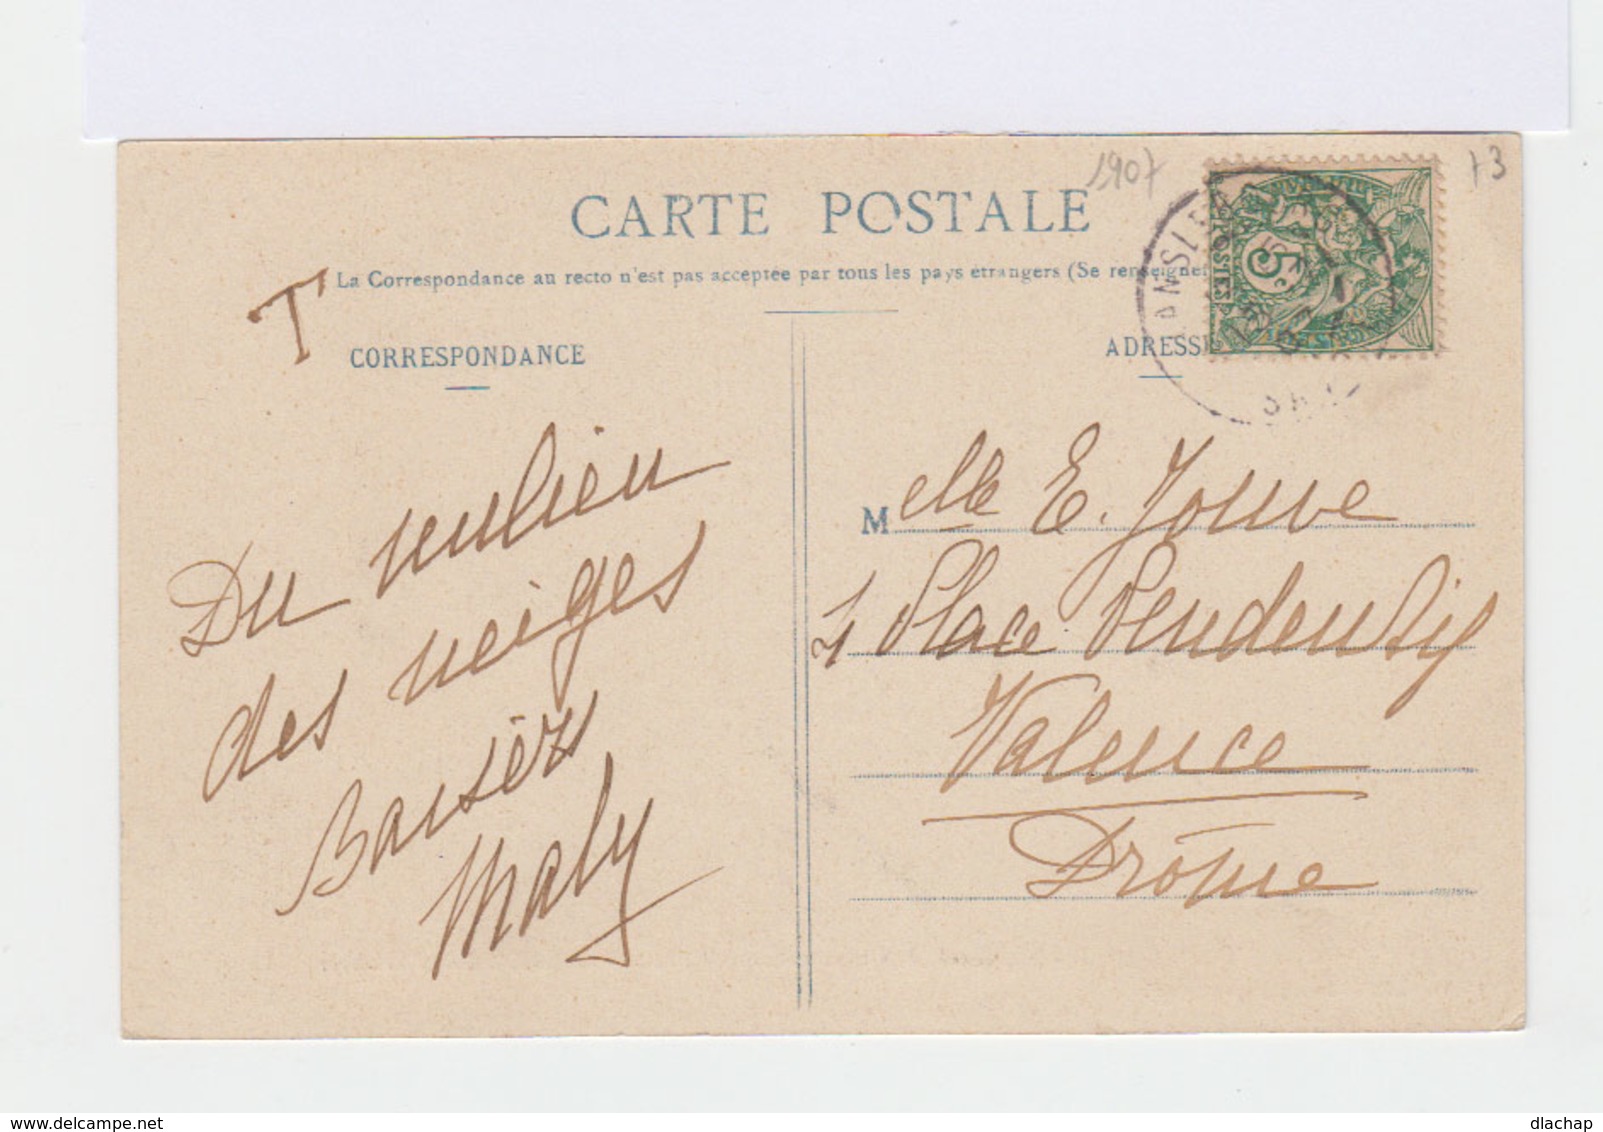 1907
13
CARTE POSTALE
La Correspondance au recto n'est pas acceptée par tous les pays étrangers (Se renseigner
T
CORRESPONDANCE
ADRESSE
POSTES
5c
Du meulieu
des neiges
Baisers
Maly
Melle E. Jouve
4 Place Pendentif
Valence
Drôme
delcampe.net
dlachap